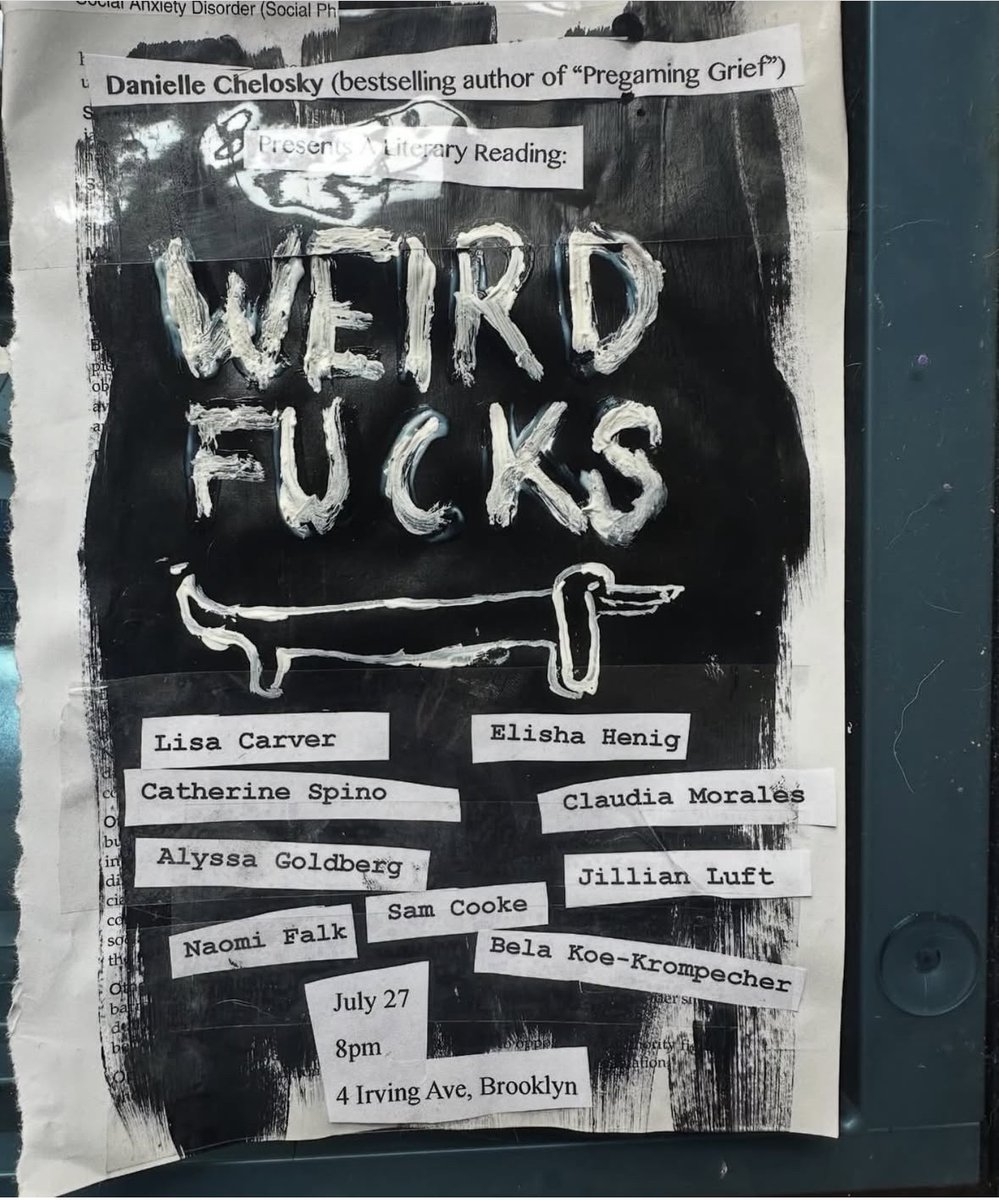 Social Anxiety Disorder (Social Ph
Danielle Chelosky (bestselling author of “Pregaming Grief”)
Presents A Literary Reading:
WEIRD
FUCKS
Lisa Carver
Elisha Henig
Catherine Spino
Claudia Morales
Alyssa Goldberg
Jillian Luft
Sam Cooke
Naomi Falk
Bela Koe-Krompecher
July 27
8pm
4 Irving Ave, Brooklyn